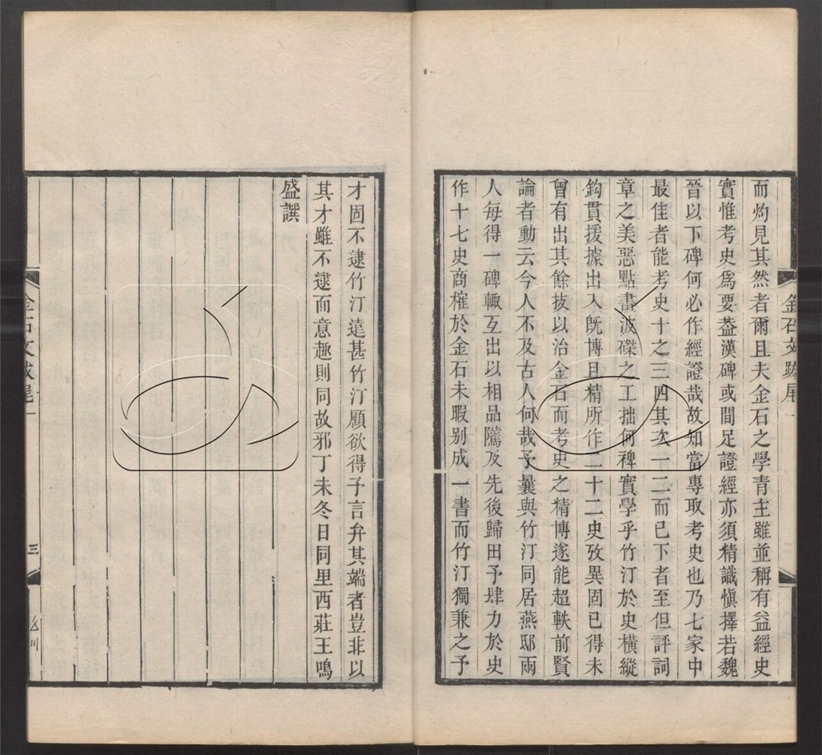 而灼見其然者爾且夫金石之學青主雖並稱有益經史
實惟考史爲要葢漢碑或間足證經亦須精識愼擇若魏
晉以下碑何必作經證哉故知當專取考史也乃七家中
最佳者能考史十之三四其次一二而已下者至但評詞
章之美惡點畫波磔之工拙何裨實學乎竹汀於史橫縱
鈎貫援據出入旣博且精所作二十二史攷異固已得未
曾有出其餘技以治金石而考史之精博遂能超軼前賢
論者動云今人不及古人何哉予曩與竹汀同居燕邸兩
人每得一碑輒互出以相品騭及先後歸田予肆力於史
作十七史商榷於金石未暇别成一書而竹汀獨兼之予
金石文跋尾
才固不逮竹汀遠甚竹汀願欲得予言弁其端者豈非以
其才雖不逮而意趣則同故邪丁未冬日同里西莊王鳴
盛譔
金石文跋尾
三